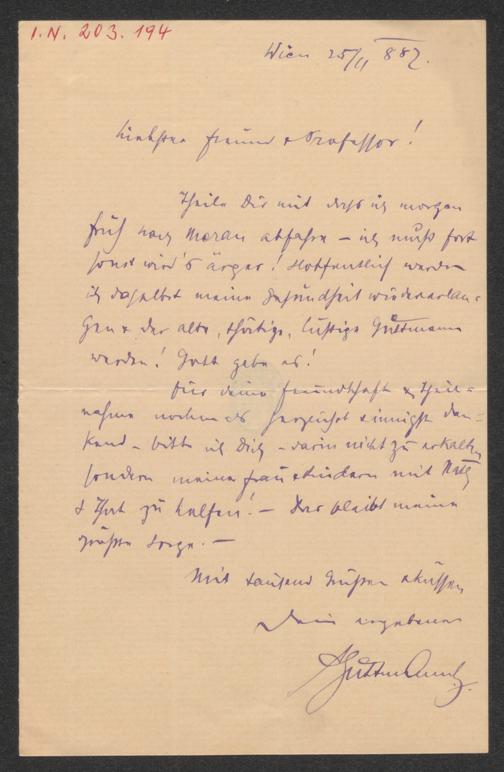 I.N. 203.194
Wien 25/II 887.
Liebster Freund & Professor!
Theile Dir mit daß ich morgen
früh nach Meran abfahre – ich muß fort
sonst wird's ärger! Hoffentlich werde
ich daselbst meine Gesundheit wiedererlan-
gen & der alte, thätige, lustige Guttmann
werden! Gott gebe es!
Für deine Freundschaft & Theil-
nahme nochmals herzlichst & innigst dan-
kend – bitte ich Dich – darin nicht zu erkalten
sondern meiner Frau & Kindern mit Rath
& That zu helfen! – Das bleibt meine
größte Sorge. –
Mit tausend Grüßen & Küssen
Dein ergebener
Guttmann